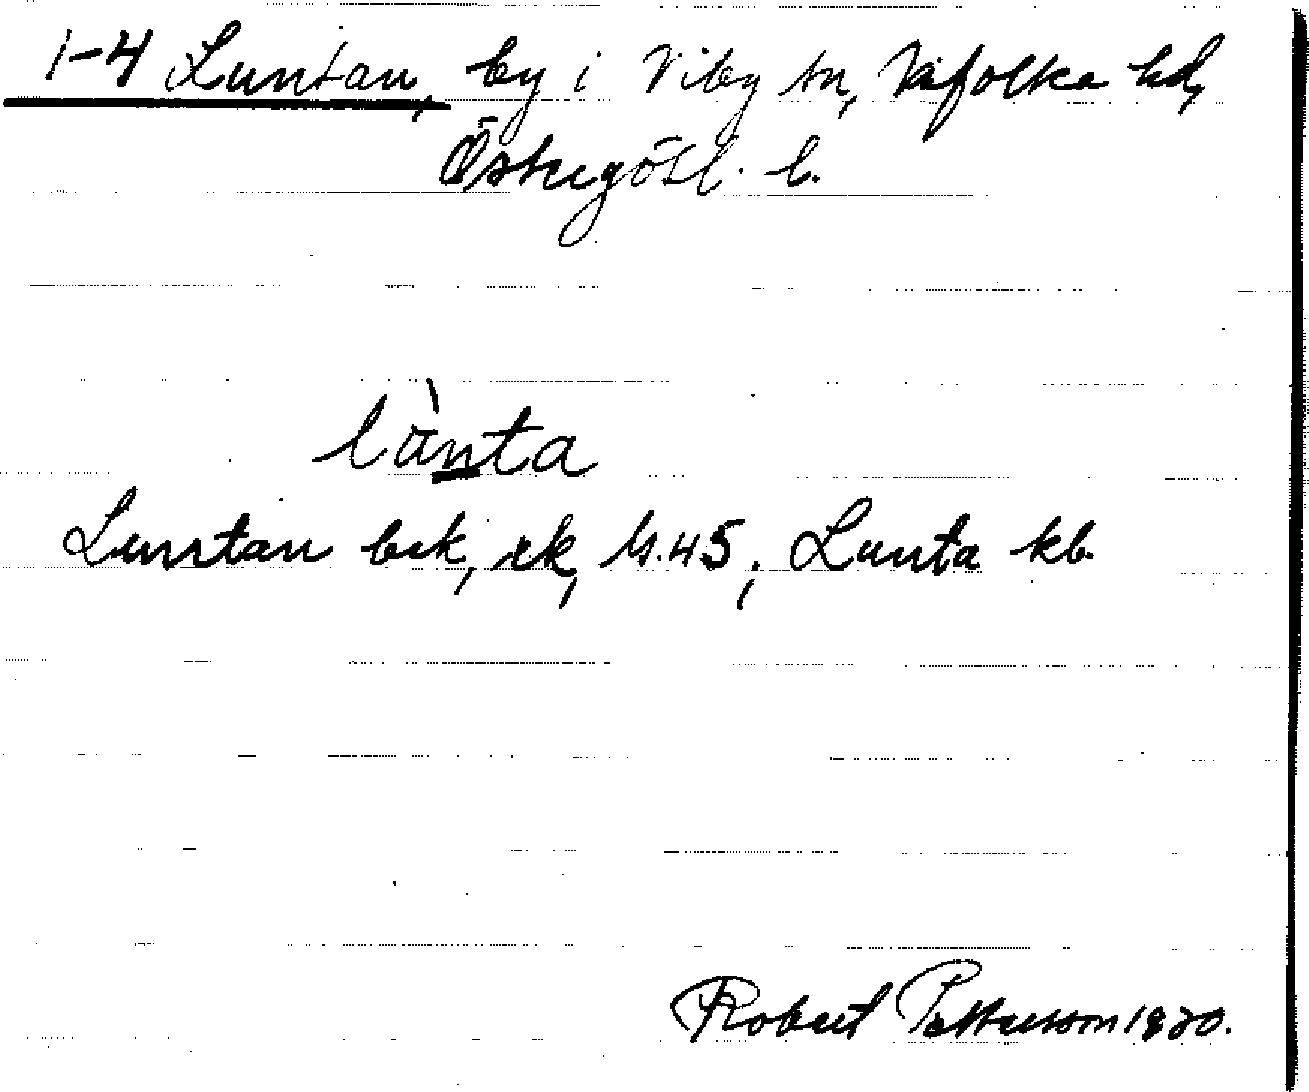 1-4 Luntan, by i Viby sn, Vifolka hd,
Östergötl. l.
lùnta
Luntan bek, rk, Y.45; Lunta kb.
Robert Pettersson 1920.